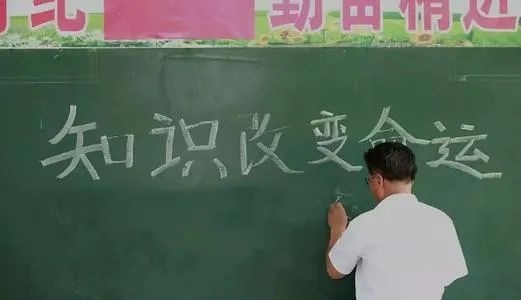 纪 勤奋精进
知识改变命运